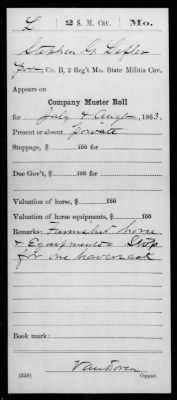 L 2 S. M. Cav. Mo.
Stephen G. Lefler
Co. B, 2 Reg't Mo. State Militia Cav.
Appears on
Company Muster Roll
for July & Augt, 1863.
Present or absent Private
Stoppage, $ 100
Due Gov't, $ 100
Valuation of horse, $ 100
Valuation of horse equipments, $ 100
Remarks: Furnishes horse
& Equipments Stop
for one haversack
Book mark:
VanDoren
(359) Copyist.